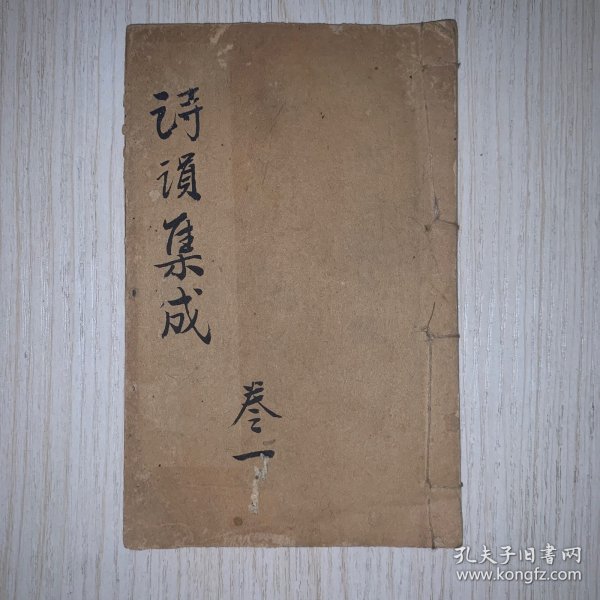 诗韻集成
卷一
孔夫子旧书网
www.kongfz.com